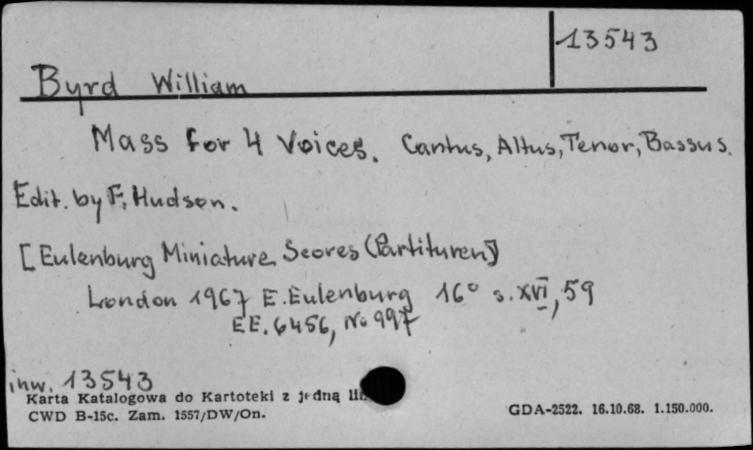 13543
Byrd William
Mass for 4 Voices. Cantus, Altus, Tenor, Bassus.
Edit. by F. Hudson.
[Eulenburg Miniature Scores (Partituren)]
London 1967 E. Eulenburg 16° s. XVI, 59
EE. 6456, No 997
inw. 13543
Karta Katalogowa do Kartoteki z jedną
CWD B-15c. Zam. 1557/DW/On.
GDA-2522. 16.10.68. 1.150.000.